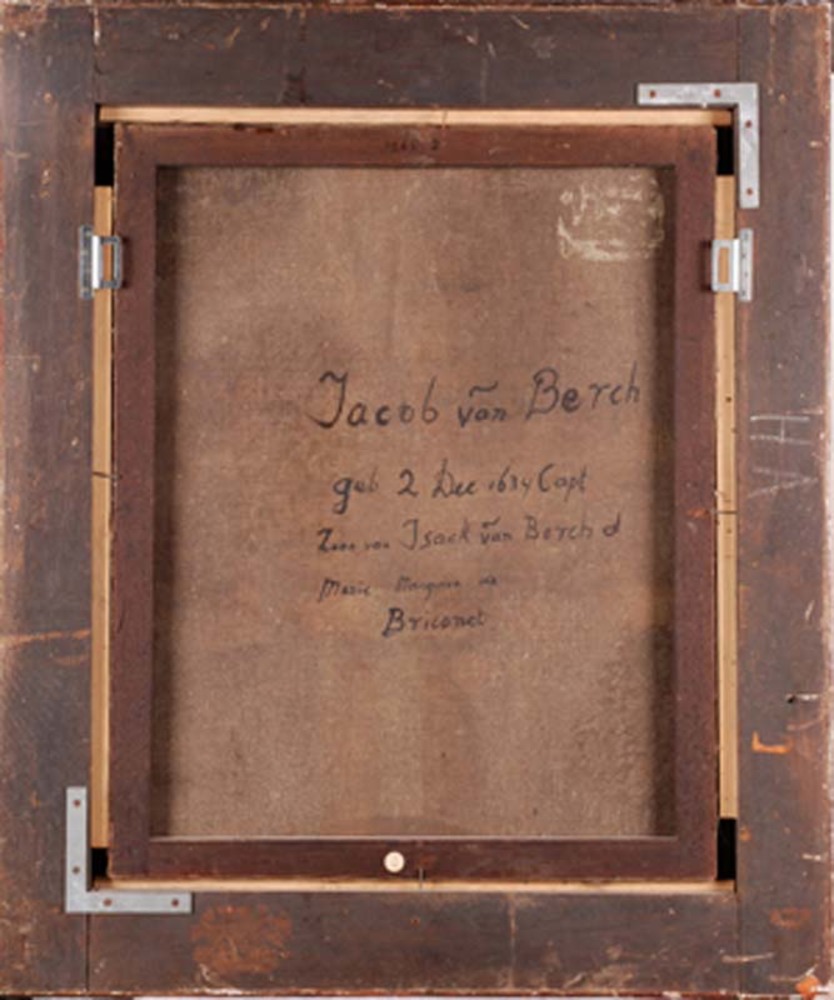 Jacob van Berch
geb 2 Dec 1634 Capt
Zoon van Isack van Berch d
Marie de
Briconet